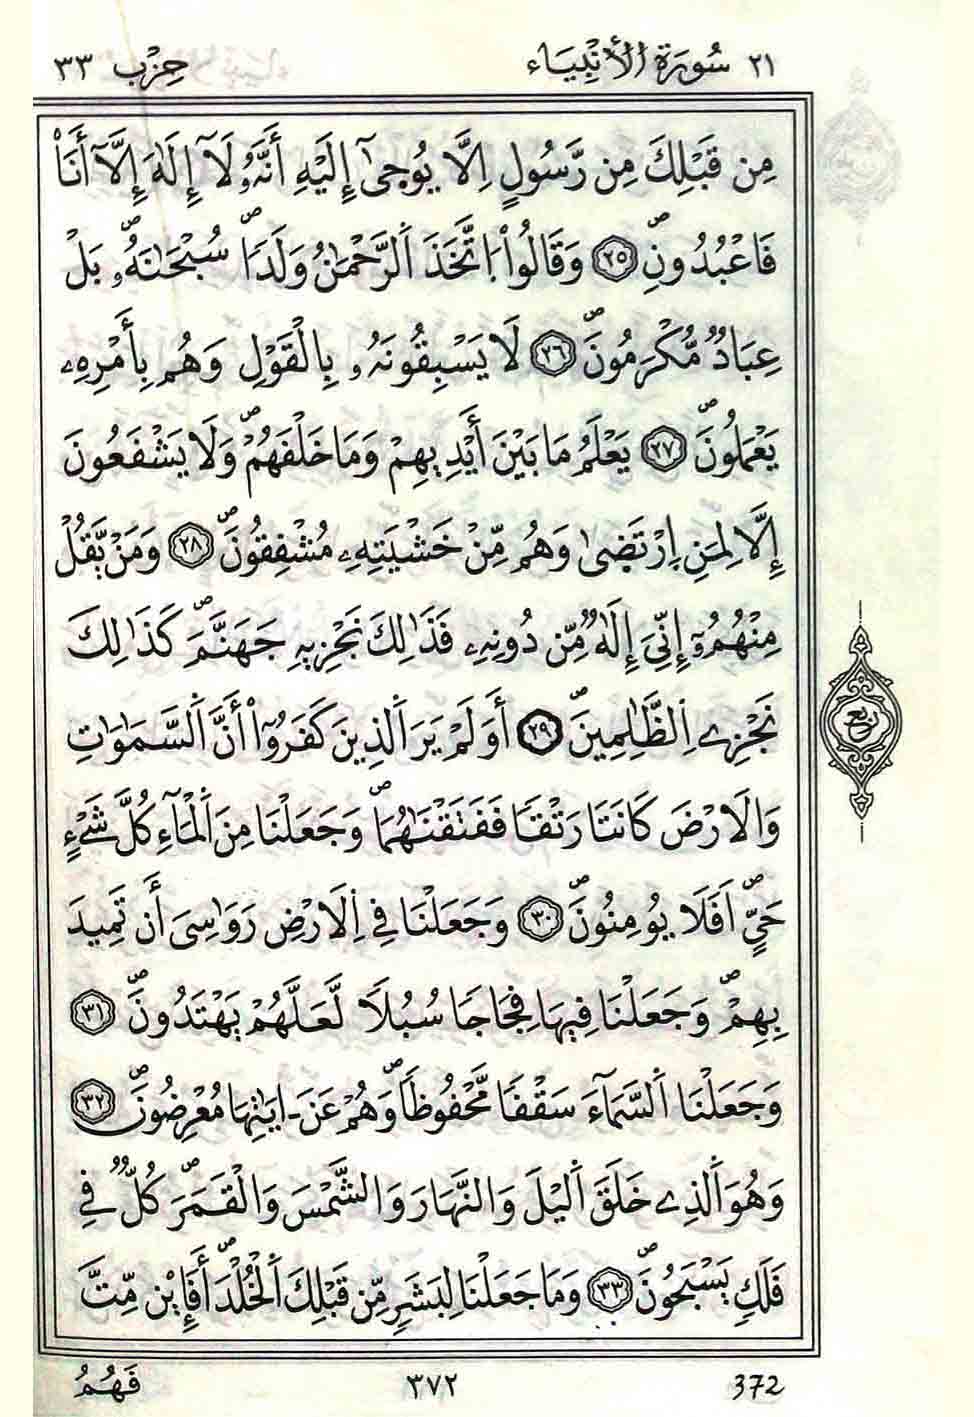 ٢١ سُورَةُ الأَنْبِيَاء حِزْب ٣٣
مِن قَبْلِكَ مِن رَّسُولٍ اِلَّا يُوحَىٰٓ إِلَيْهِ أَنَّهُۥ لَآ إِلَٰهَ إِلَّآ أَنَا۠
فَاعْبُدُونِۖ ٢٥ وَقَالُواْ اُ۪تَّخَذَ اَ۬لرَّحْمَٰنُ وَلَداٗۖ سُبْحَٰنَهُۥۖ بَلْ
عِبَادٞ مُّكْرَمُونَۖ ٢٦ لَا يَسْبِقُونَهُۥ بِالْقَوْلِ وَهُم بِأَمْرِهِۦ
يَعْمَلُونَۖ ٢٧ يَعْلَمُ مَا بَيْنَ أَيْدِيهِمْ وَمَا خَلْفَهُمْۖ وَلَا يَشْفَعُونَ
إِلَّا لِمَنِ اِ۪رْتَضَىٰ وَهُم مِّنْ خَشْيَتِهِۦ مُشْفِقُونَۖ ٢٨ وَمَنْ يَّقُلْ
مِنْهُمُۥٓ إِنِّيَ إِلَٰهٞ مِّن دُونِهِۦ فَذَٰلِكَ نَجْزِيهِ جَهَنَّمَۖ كَذَٰلِكَ
نَجْزِے اِ۬لظَّٰلِمِينَۖ ٢٩ أَوَلَمْ يَرَ اَ۬لذِينَ كَفَرُوٓاْ أَنَّ اَ۬لسَّمَٰوَٰتِ
وَالَارْضَ كَانَتَا رَتْقاٗ فَفَتَقْنَٰهُمَاۖ وَجَعَلْنَا مِنَ اَ۬لْمَآءِ كُلَّ شَےْءٍ
حَيٍّۖ اَفَلَا يُومِنُونَۖ ٣٠ وَجَعَلْنَا فِے اِ۬لَارْضِ رَوَٰسِيَ أَن تَمِيدَ
بِهِمْۖ وَجَعَلْنَا فِيهَا فِجَاجاٗ سُبُلاٗ لَّعَلَّهُمْ يَهْتَدُونَۖ ٣١
وَجَعَلْنَا اَ۬لسَّمَآءَ سَقْفاٗ مَّحْفُوظاٗۖ وَهُمْ عَنَ ـ ايَٰتِهَا مُعْرِضُونَۖ ٣٢
وَهُوَ اَ۬لذِے خَلَقَ اَ۬ليْلَ وَالنَّهَارَ وَالشَّمْسَ وَالْقَمَرَۖ كُلّٞ فِے
فَلَكٖ يَسْبَحُونَۖ ٣٣ وَمَا جَعَلْنَا لِبَشَرٖ مِّن قَبْلِكَ اَ۬لْخُلْدَۖ أَفَإِيْن مِّتَّ
ربع
فَهُمُ ٣٧٢ 372